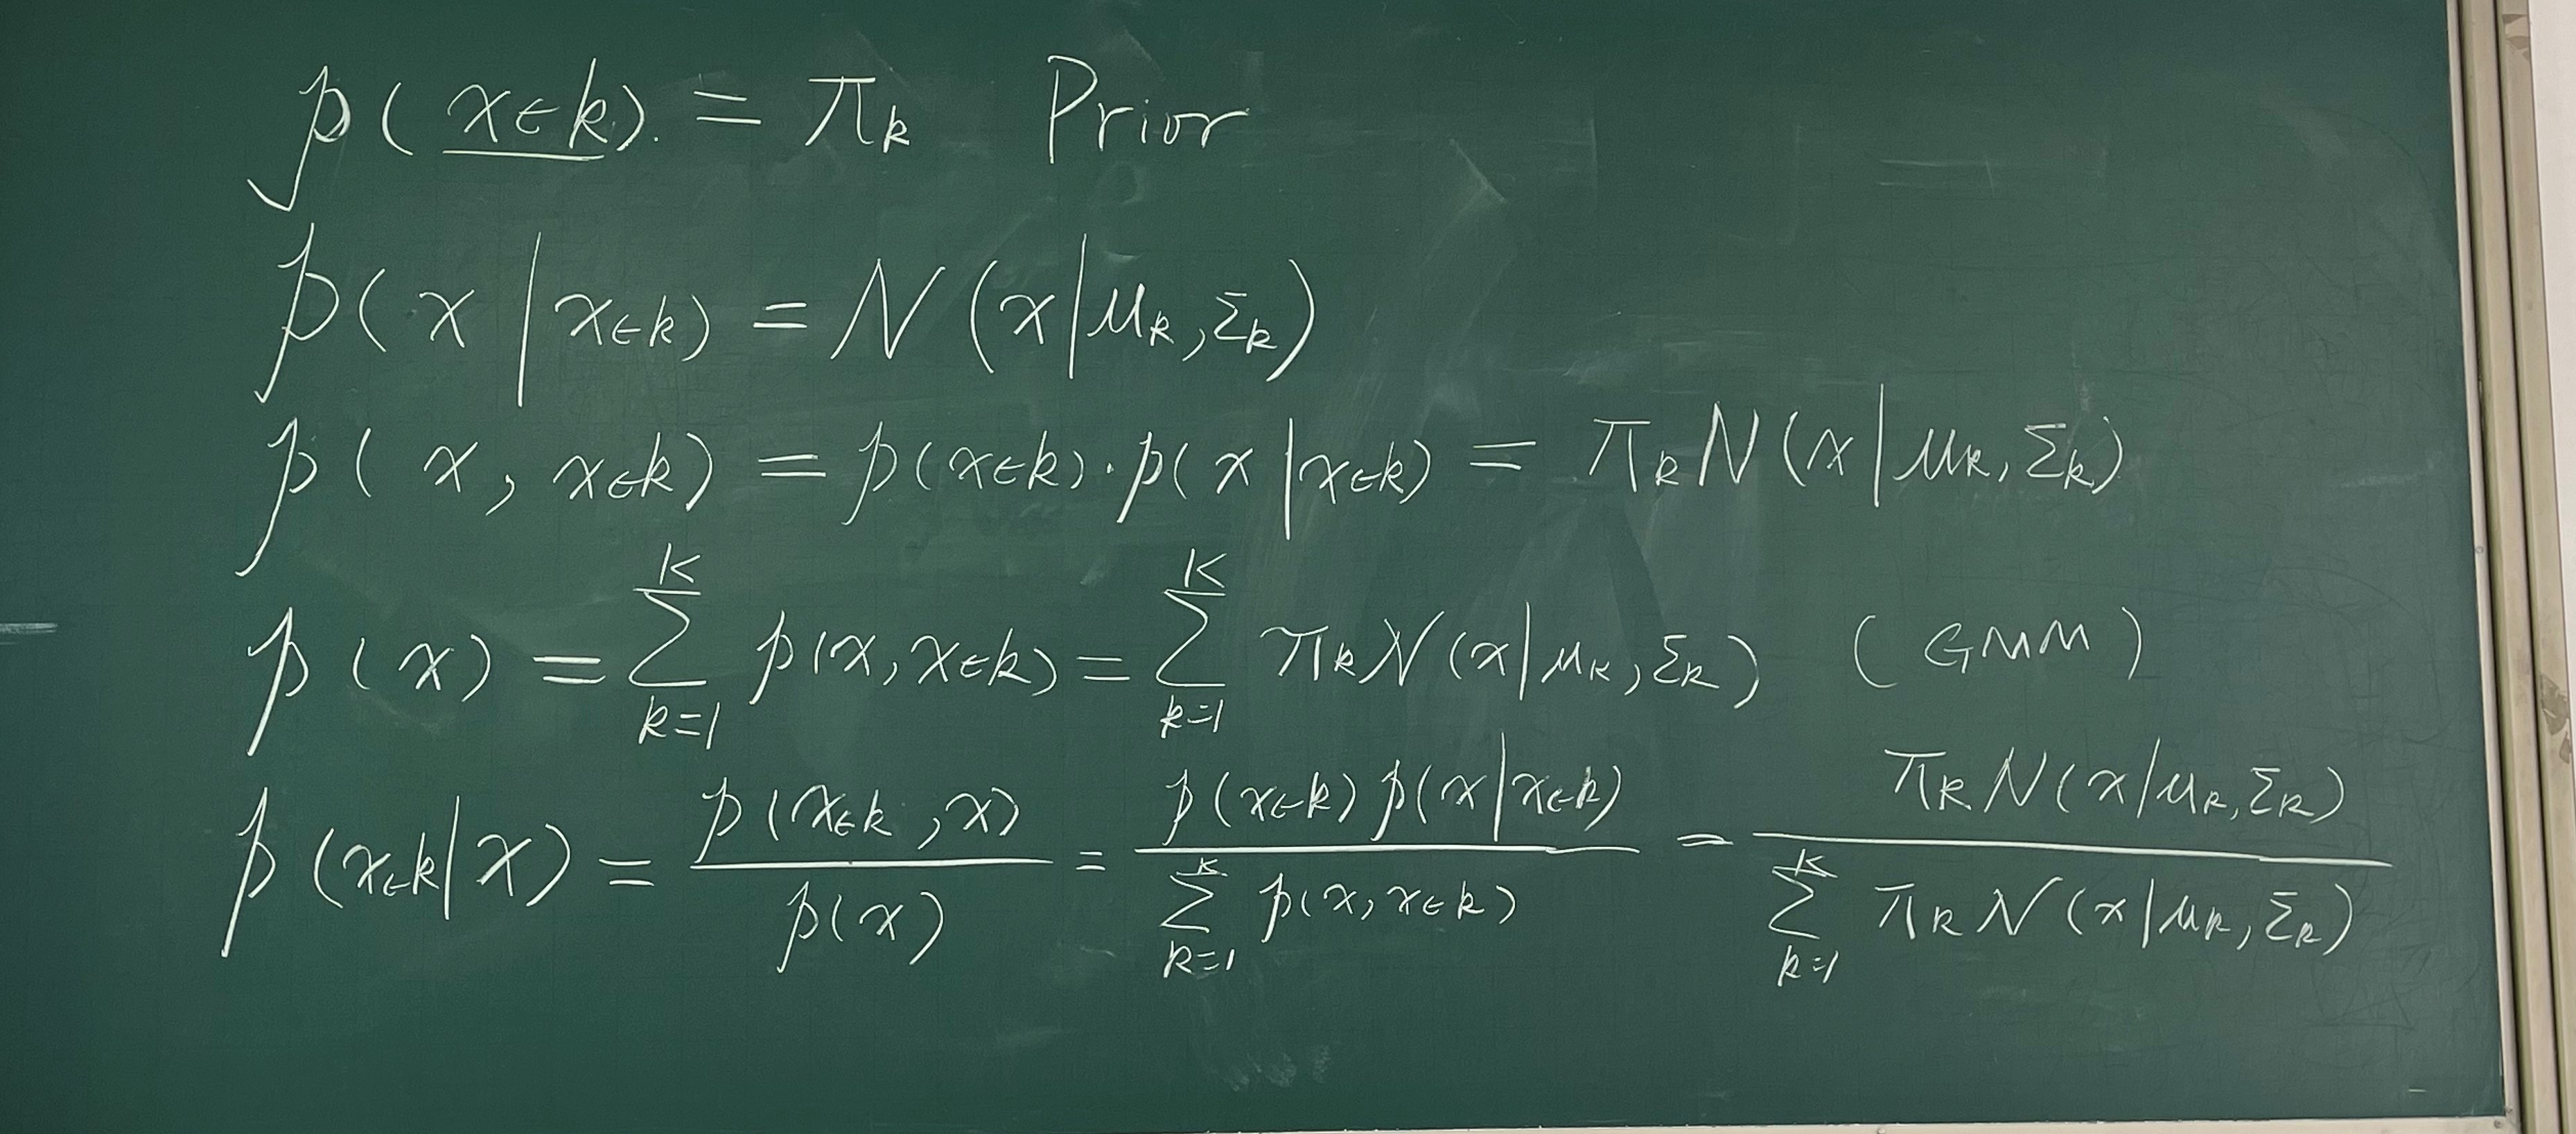 p(x∈k). = π_k Prior
p(x|x∈k) = N(x|μ_k, Σ_k)
p(x, x∈k) = p(x∈k)·p(x|x∈k) = π_k N(x|μ_k, Σ_k)
p(x) = \sum_{k=1}^{K} p(x, x∈k) = \sum_{k=1}^{K} π_k N(x|μ_k, Σ_k) (GMM)
p(x∈k|x) = \frac{p(x∈k, x)}{p(x)} = \frac{p(x∈k) p(x|x∈k)}{\sum_{k=1}^{K} p(x, x∈k)} = \frac{π_k N(x|μ_k, Σ_k)}{\sum_{k=1}^{K} π_k N(x|μ_k, Σ_k)}